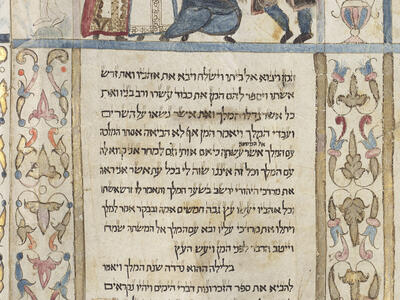 המן ויבוא אל ביתו וישלח ויבא את אהביו ואת זרש
אשתו ויספר להם המן את כבוד עשרו ורב בניו ואת
כל אשר גדלו המלך ואת אשר נשאו על השרים
ועבדי המלך ויאמר המן אף לא הביאה אסתר המלכה
אל המשתה
עם המלך אשר עשתה כי אם אותי וגם למחר אני קרוא לה
עם המלך וכל זה איננו שוה לי בכל עת אשר אני ראה
את מרדכי היהודי יושב בשער המלך ותאמר לו זרש אשתו
וכל אהביו יעשו עץ גבה חמשים אמה ובבקר אמר למלך
ויתלו את מרדכי עליו ובא עם המלך אל המשתה שמח
וייטב הדבר לפני המן ויעש העץ
בלילה ההוא נדדה שנת המלך ויאמר
להביא את ספר הזכרנות דברי הימים ויהיו נקראים